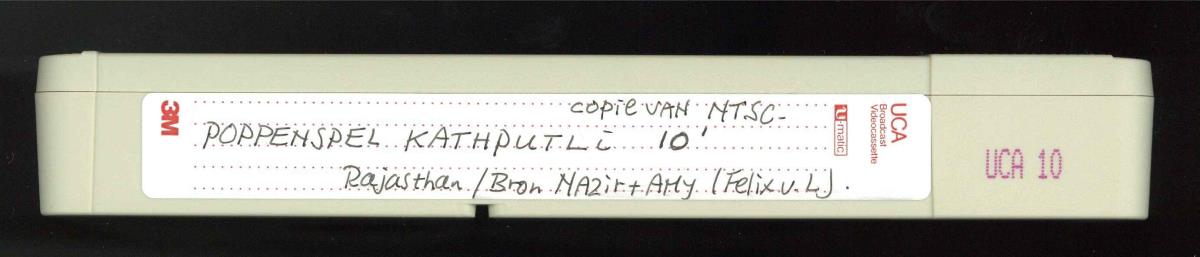 3M
copie van NTSC-
POPPENSPEL KATHPUTLi 10'
Rajasthan / Bron NAzir + AMy (Felix v. L).
u-matic
UCA
Broadcast
Videocassette
UCA 10